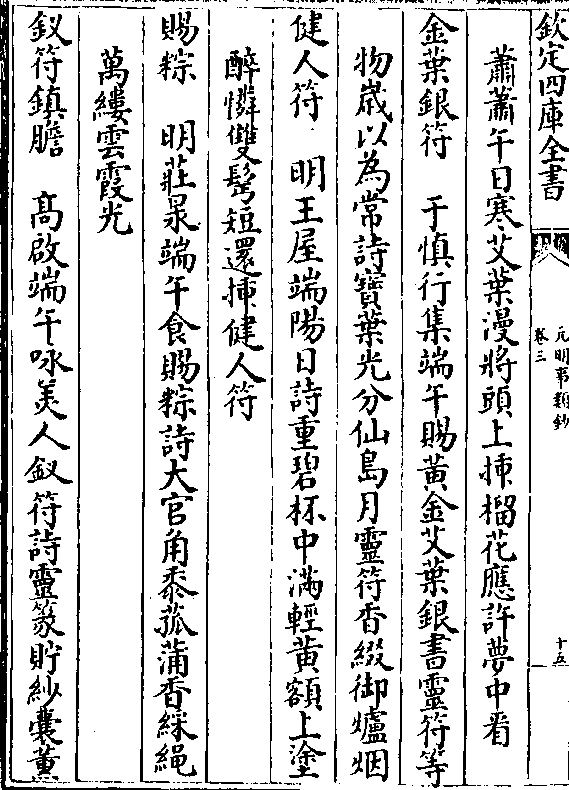 欽定四庫全書
元明事類鈔
卷三
十五
蕭蕭午日寒艾葉漫將頭上揷榴花應許夢中看
金葉銀符　于慎行集端午賜黄金艾葉銀書靈符等
物嵗以為常詩寳葉光分仙島月靈符香綴御爐烟
健人符　明王屋端陽日詩重碧杯中滿輕黄額上塗
醉憐雙髩短還揷健人符
賜粽　明莊㫤端午食賜粽詩大官角黍菰蒲香綵繩
萬縷雲霞光
釵符鎮膽　髙啟端午咏美人釵符詩靈篆貯紗囊薫